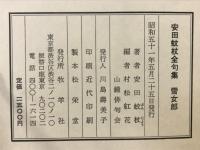 安田蚊杖全句集 雪女郎
昭和五十一年五月二十五日発行
著者 安田蚊杖
編者 村松紅花
山鶴俳句会
発行人 川島壽美子
印刷 近代印刷
製本 松栄堂
発行所 牧羊社
東京都渋谷区渋谷二ノ一〇ノ一
振替口座東京九〇二〇二
電話 四〇〇一六一四
定価 二五〇〇円